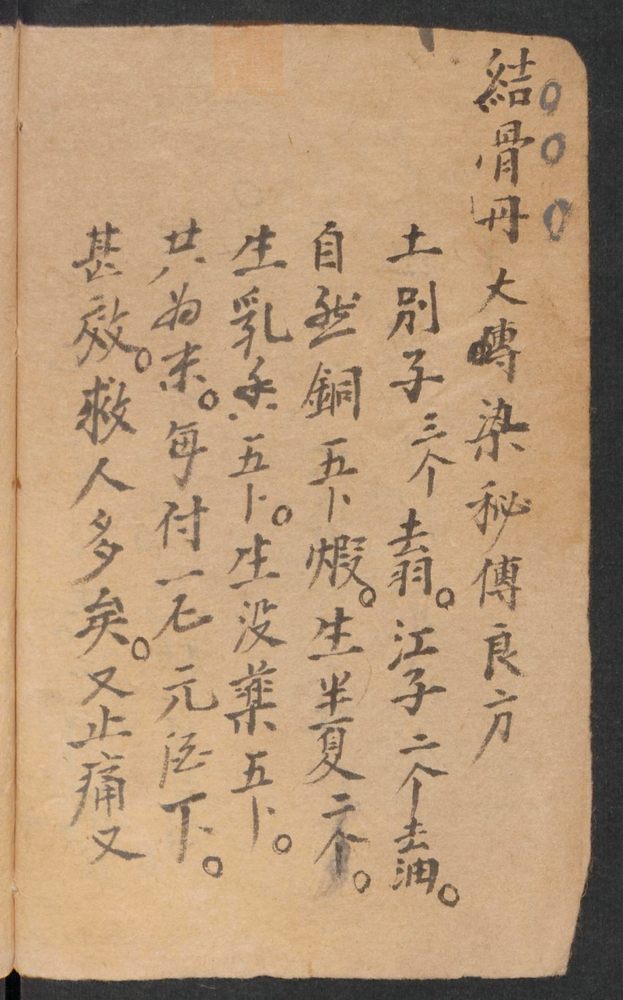 結骨丹 大轉染秘傳良方
土別子三个去翁。江子二个去油。
自然銅五卜煅。生半夏二个。
生乳香五卜。生没藥五卜。
共為末。每付一元酒下。
甚效。救人多矣。又止痛又